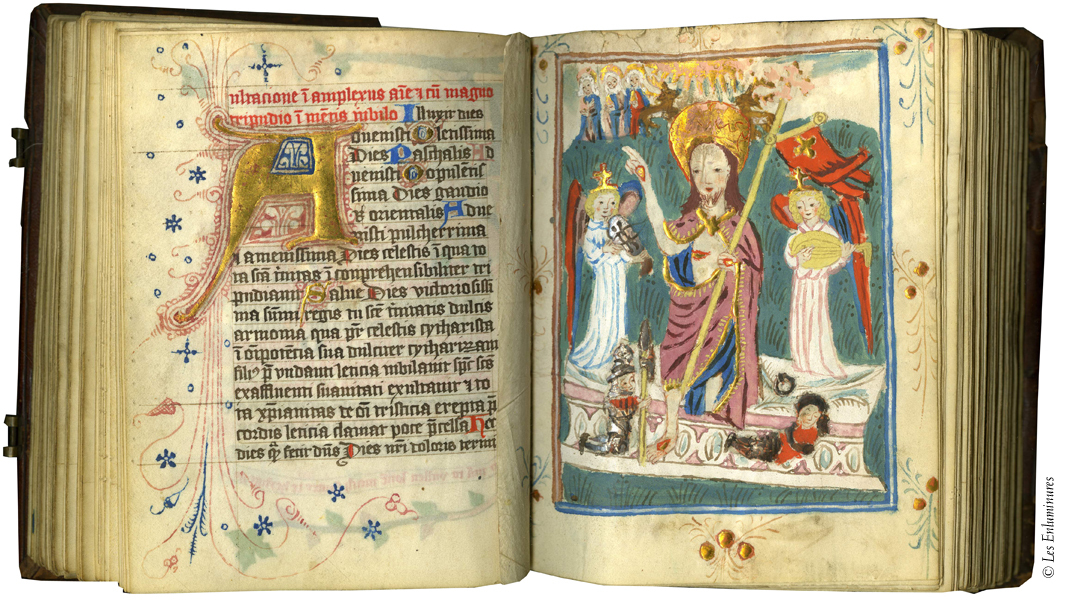 ultacione ī amplexus aīe ⁊ cū magno
tripudio ī mētis iubilo Illuxit dies
A duenisti O lentissima
Dies Paschalis Ad
uenisti O opulentis
sima Dies gaudio
s orientalis Adue
nisti pulcherrima
⁊ amenissima Dies celestis ī qua to
ta scā t̄nitas īcomprehensibiliter tri
pudiauit Salue Dies victoriosissi
ma sūmi regis In scē t̄nitatis dulcis
armonia qua p̄r celestis cytharista
ī oīpotencia sua dulciter cytharizam
filiꝰ p̄ vndanti leticia iubilauit sp̄c scs
ex affluenti suauitati exultauit ⁊ to
ta xp̄ianitas tristicia erepta p̄
cordis leticia clamat voce p̄celsa Hec
dies q̄ fecit dn̄s Dies nr̄i doloris termi
© Les Enluminures